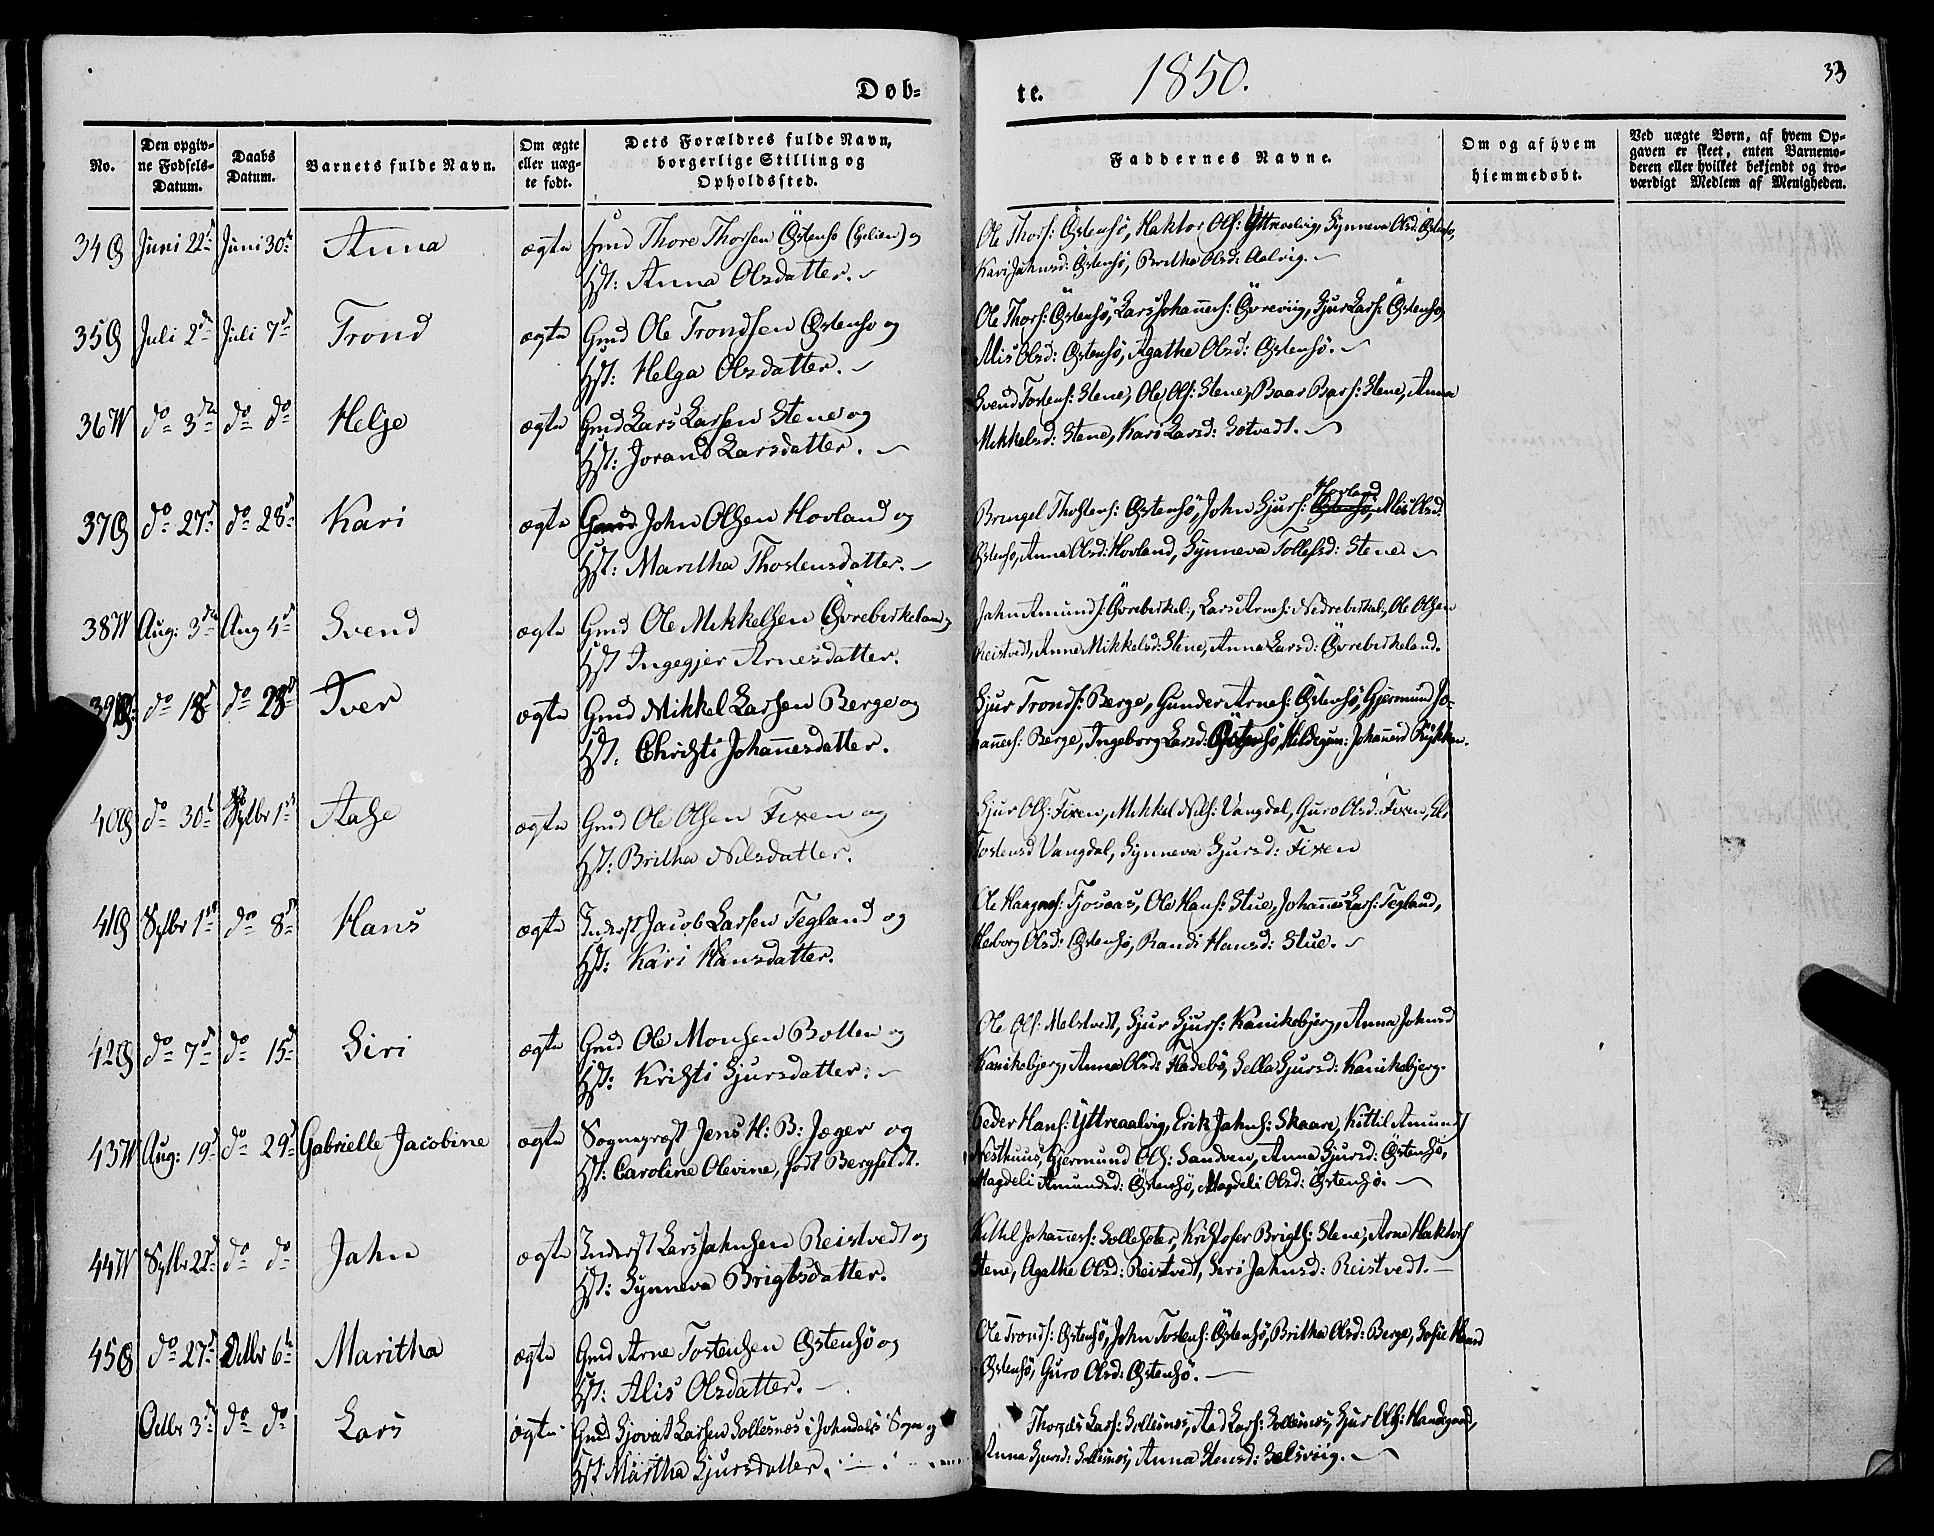 Døb-
te.
1850.
33
No.
Den opgiv-
ne Fødsels-
Datum.
Daabs
Datum.
Barnets fulde Navn.
Om ægte
eller uæg-
te født.
Dets Forældres fulde Navn,
borgerlige Stilling og
Opholdssted.
Faddernes Navne.
Om og af hvem
hjemmedøbt.
Ved uægte Børn, af hvem Op-
gaven er skeet, enten Barnemo-
deren eller hvilket bekjendt og tro-
værdigt Medlem af Menigheden.
34 Juni 22 Juni 30 Anna ægte Gmd Thore Thorsen Östensø og
Hst: Anna Olsdatter.
Ole Thors: Östensö, Haktor Ols: Yttreaalvig, Synneva Olsd: Östensø,
Kari Jahnsd: Östensö, Britha Olsd: Aalvig.
35 Juli 2 Juli 7 Trond ægte Gmd Ole Trondsen Östensø og
Hst: Helga Olsdatter.
Ole Thors: Östensö, Lars Johannes: Övrevig, Sjur Lars: Östensö,
Alis Olsd: Östensö, Agatha Olsd: Östensö.
36 do 3 do do Helje ægte Gmd Lars Larsen Stene og
Hst: Jorand Larsdatter.
Svend Tostens: Stene, Ole Ols: Stene, Baar Bars: Stene, Anna
Mikkelsd: Stene, Kari Larsd: Sotvedt.
37 do 27 do 28 Kari ægte Gmd John Olsen Hovland og
Hst: Maritha Thostensdatter.
Bringel Thostens: Östensö, John Sjurs: Hovland Östensö, Alis Olsd:
Östensø, Anna Olsd: Hovland, Synneva Tollefsd: Stene.
38 Aug: 3 Aug 4 Svend ægte Gmd Ole Mikkelsen Övrebirkeland
Hst Ingegjer Arnesdatter.
Jahn Amunds: Övrebirkel., Lars Arnes: Nedrebirkel, Ole Olsen
Reistvedt, Anna Mikkelsd: Stene, Anna Larsd: Övrebirkeland.
39 do 18 do 28 Iver ægte Gmd Mikkel Larsen Berge og
Hst: Christi Johannesdatter.
Sjur Tronds: Berge, Gunder Arnes: Östensö, Gjermund Jo-
hannes: Berge, Ingeborg Larsd: Östensö, Johannesd Rykken.
40 do 30 Sptbr 1 Aase ægte Gmd Ole Olsen Fixen og
Hst: Britha Nilsdatter.
Sjur Ols: Fixen, Mikkel Nils: Vangdal, Guro Olsd: Fixen,
Tostensd Vangdal, Synneva Sjursd: Fixen
41 Sptbr 1 do 8 Hans ægte Inderst Jacob Larsen Tegland og
Hst: Kari Hansdatter.
Ole Haagens: Tjosaas, Ole Hans: Stue, Johannes Lars: Tegland,
Herborg Olsd: Östensö, Randi Hansd: Stue.
42 do 7 do 15 Siri ægte Gmd Ole Monsen Botten og
Hst: Kristi Sjursdatter:
Ole Ols: Melstvedt, Sjur Sjurs: Kanikebjerg, Anna Johnsd
Kanikebjerg, Anna Olsd: Fladebö, Sella Sjursd: Kanikebjerg.
43 Aug: 19 do 29 Gabrielle Jacobine ægte Sognepræst Jens H: B: Jæger og
Hst: Caroline Olevine, født Bergfeldt.
Peder Hans: Yttreaalvig, Erik Jahns: Skaare, Kittil Amunds
Nesthuus, Gjermund Ols: Sandven, Anna Sjursd: Östensö,
Magdeli Amundsd: Östensö, Magdeli Olsd: Östensø.
44 Sptbr 22 do do Jahn ægte Inderst Lars Jahnsen Reistvedt og
Hst: Synneva Brigtsdatter.
Kittil Johannes: Kristofer Brigts: Stene, Arne Haktors
Stene, Agatha Olsd: Reistvedt, Siri Jahnsd: Reistvedt.
45 do 27 Octbr 6 Maritha ægte Gmd Arne Tostensen Östensö og
Hst: Alis Olsdatter.
Ole Tronds: Östensö, John Tostens: Östensö, Britha Olsd: Berge, Sofie
Östensö, Guro Olsd: Östensö.
Octbr 3 do do Lars ægte Gmd Sjovat Larsen Sollesnæs i Jondals Sogn og
Hst Martha Sjursdatter.
Lars: Sollesnæs, Aad Lars: Sollesnæs, Sjur Ols: Handegaard,
Anna Sjursd: Sollesnæs, Anna Stensd: Selsviig.